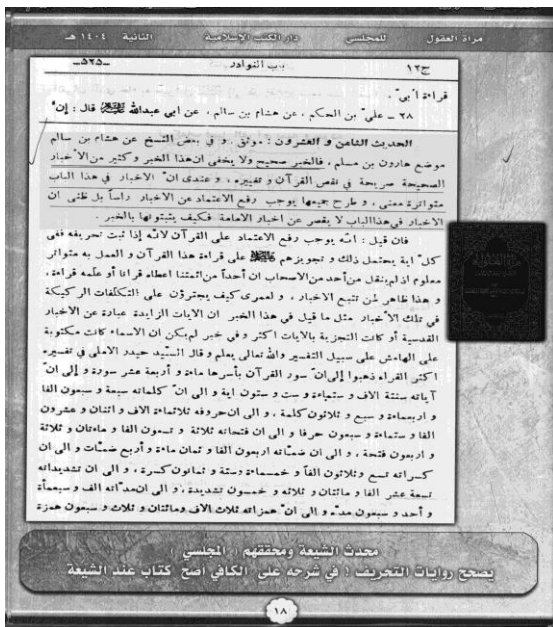 مرآة العقول للمجلسي دار الكتب الإسلامية الثانية ١٤٠٤ هـ
ج١٢ باب النوادر -٥٢٥-
قراءة أبيّ .
٢٨ ـ عليّ بن الحكم ، عن هشام بن سالم ، عن أبي عبدالله عليه السلام قال : إنّ
الحديث الثامن و العشرون : موثق . و في بعض النسخ عن هشام بن سالم
موضع هارون بن مسلم ، فالخبر صحيح ولا يخفى ان هذا الخبر و كثير من الأخبار
الصحيحة صريحة في نقص القرآن و تغييره ، و عندى انّ الاخبار في هذا الباب
متواترة معنى ، و طرح جميعها يوجب رفع الاعتماد عن الاخبار رأساً بل ظنى ان
الاخبار في هذا الباب لا يقصر عن اخبار الامامة فكيف يثبتونها بالخبر .
فان قيل : انّه يوجب رفع الاعتماد على القرآن لانّه إذا ثبت تحريفه ففى
كلّ اية يحتمل ذلك و تجويزهم عليهم السلام على قراءة هذا القرآن و العمل به متواتر
معلوم اذ لم ينقل من أحد من الاصحاب ان أحداً من ائمتنا اعطاه قرانا أو علّمه قراءة ،
و هذا ظاهر لمن تتبع الاخبار ، و لعمرى كيف يجترؤن على التكلفات الركيكة
في تلك الأخبار مثل ما قيل في هذا الخبر ان الايات الزايدة عبارة عن الاخبار
القدسية أو كانت التجزية بالايات اكثر و في خبر لم يكن ان الاسماء كانت مكتوبة
على الهامش على سبيل التفسير والله تعالى يعلم و قال السيّد حيدر الاملى في تفسيره
اكثر القراء ذهبوا إلى انّ سور القرآن بأسرها ماءة و أربعة عشر سورة و إلى انّ
آياته ستة الاف و ستماءة و ست و ستون اية و الى انّ كلماته سبعة و سبعون الفا
و اربعماءة و سبع و ثلاثون كلمة ، و الى ان حروفه ثلاثماءة الاف و اثنان و عشرون
الفا و ستماءة و سبعون حرفا و الى ان فتحاته ثلاثة و تسعون الفا و ماءتان و ثلاثة
و اربعون فتحة ، و الى ان ضمّاته اربعون الفا و ثمان ماءة و أربع ضمّات و الى ان
كسراته تسع وثلاثون الفاً و خمسماءة وستة و ثمانون كسرة ، و الى ان تشديداته
تسعة عشر الفا و مائتان و ثلاثه و خمسون تشديدة ، و الى ان مدّاته الف و سبعمأة
و أحد و سبعون مدّه و الى انّ همزاته ثلاث الاف ومائتان و ثلاث و سبعون همزة
محدث الشيعة ومحققهم ( المجلسي )
يصحح روايات التحريف ! في شرحه على الكافي أصح كتاب عند الشيعة
١٨